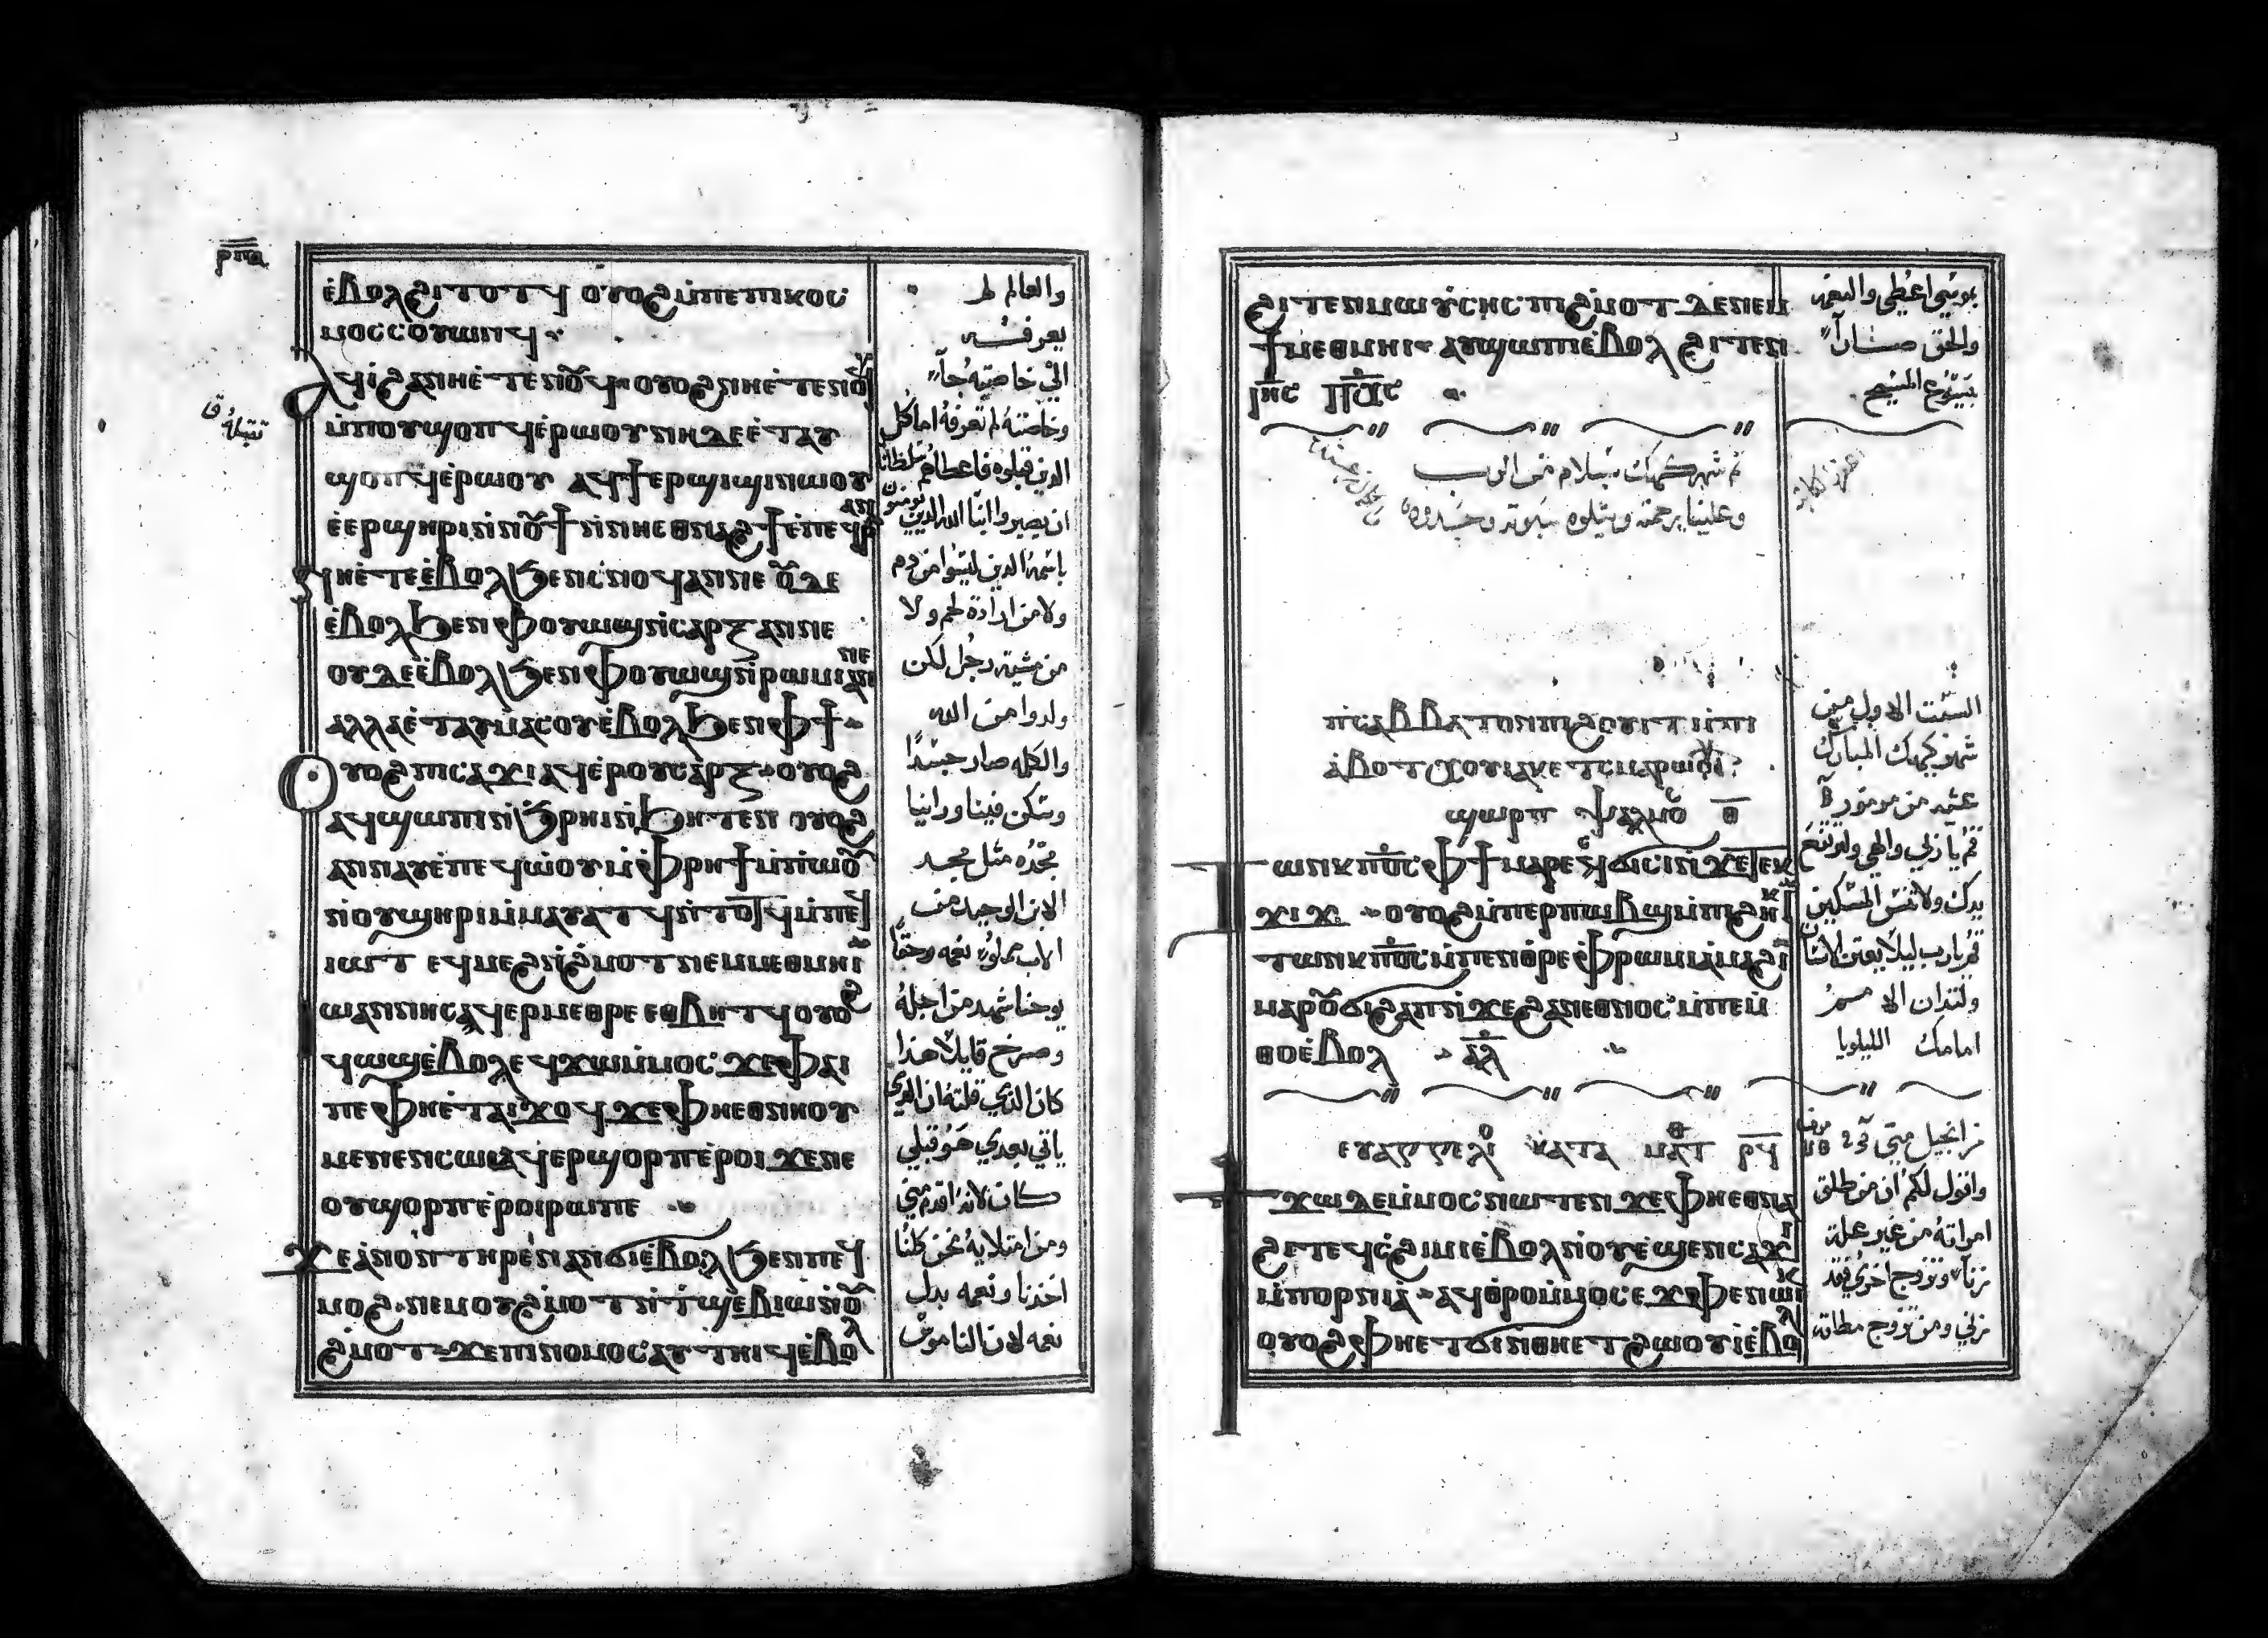 ⲣⲡⲁ
ⲉ̇ⲃⲟⲗϩⲓⲧⲟⲧϥ ⲟⲩⲟϩⲙ̇ⲡⲉⲡⲓⲕⲟⲥ
ⲙⲟⲥⲥⲟⲩⲱⲛϥ
ⲁϥⲓ̇ϩⲁⲛⲏⲉ̇ⲧⲉⲛⲟⲩϥ ⲟⲩⲟϩⲛⲏⲉ̇ⲧⲉⲛⲟⲩϥ
ⲙ̇ⲡⲟⲩϣⲟⲡϥ ⲉ̇ⲣⲱⲟⲩ ⲛⲏⲇⲉⲉ̇ⲧⲁⲩ
ϣⲟⲡϥ ⲉ̇ⲣⲱⲟⲩ ⲁϥϯⲉⲣϣⲓϣⲓⲛⲱⲟⲩ
ⲉ̇ⲉⲣϣⲏⲣⲓⲛ̇ⲛⲟⲩϯ ⲛ̇ⲛⲏⲉⲑⲛⲁϩϯ ⲉ̇ⲡⲉϥⲣⲁⲛ
ⲛⲏⲉ̇ⲧⲉⲉ̇ⲃⲟⲗϧⲉⲛⲥ̇ⲛⲟϥⲁⲛⲛⲉ ⲟⲩⲇⲉ
ⲉ̇ⲃⲟⲗϧⲉⲛⲫⲟⲩⲱϣⲛ̇ⲥⲁⲣⲝⲁⲛⲛⲉ
ⲟⲩⲇⲉⲉ̇ⲃⲟⲗϧⲉⲛⲫⲟⲩⲱϣⲛ̇ⲣⲱⲙⲓⲁⲛⲛⲉ
ⲁⲗⲗⲁⲉ̇ⲧⲁⲩⲙⲁⲥⲟⲩⲉ̇ⲃⲟⲗϧⲉⲛⲫϯ
ⲟⲩⲟϩⲡⲓⲥⲁϫⲓⲁϥⲉ̇ⲣⲟⲩⲥⲁⲣⲝ ⲟⲩⲟϩ
ⲁϥϣⲱⲡⲓⲛ̇ϧ̇ⲣⲏⲓⲛ̇ϧⲏⲧⲉⲛ ⲟⲩⲟϩ
ⲁⲛⲛⲁⲩⲉ̇ⲡⲉϥⲱ̇ⲟⲩ ⲙ̇ⲫⲣⲏϯ ⲙ̇ⲡⲱⲟⲩ
ⲛ̇ⲟⲩϣⲏⲣⲓⲙ̇ⲙⲁⲩⲁⲧϥ ⲛ̇ⲧⲟⲧϥ ⲙ̇ⲡⲉϥ
ⲓⲱⲧ ⲉϥⲙⲉϩⲛ̇ϩ̇ⲙⲟⲧⲛⲉⲙⲙⲉⲑⲙⲏⲓ
ⲓⲱⲁⲛⲛⲏⲥⲁϥⲉⲣⲙⲉⲑⲣⲉ ⲉⲑⲃⲏⲧϥ ⲟⲩⲟϩ
ϥⲱϣⲉ̇ⲃⲟⲗⲉϥϫⲱⲙ̇ⲙⲟⲥ ϫⲉⲫⲁⲓ
ⲡⲉ ⲫⲏⲉ̇ⲧⲁⲓϫⲟϥ ϫⲉⲫⲏⲉⲑⲛⲏⲟⲩ
ⲙⲉⲛⲉⲛⲥⲱⲓⲁϥⲉⲣϣⲟⲣⲡⲉ̇ⲣⲟⲓ ϫⲉⲛⲉ
ⲟⲩϣⲟⲣⲡⲉ̇ⲣⲟⲓⲣⲱⲡⲉ
ϫⲉⲁ̇ⲛⲟⲛ ⲧⲏⲣⲉⲛⲁⲛϭⲓⲉ̇ⲃⲟⲗϧⲉⲛⲡⲉϥ
ⲙⲟϩ ⲛⲉⲙⲟⲩϩ̇ⲙⲟⲧⲛ̇ⲧϣⲉ̇ⲃⲓⲱⲛ̇ⲟⲩ
ϩ̇ⲙⲟⲧ ϫⲉⲡⲓⲛⲟⲙⲟⲥⲁⲩⲧⲏⲓϥⲉ̇ⲃⲟⲗ
والعالم لم
يعرفــه
الي خاصته جآ
وخاصته لم تعرفه اما كل
الدين قبلوه فاعطاهم سلطانا
ان يصيروا ابنا الله الدين يومنون
باسمه الدين ليسوا من دم
ولا من ارادة لحم ولا
من مشية رجل لكن
ولدوا من الله
والكلمه صار جسدًا
وسكن فينا وراينا
مجده مثل مجد
الابن الوحيد من
الاب مملوا نعمه وحقًا
يوحنا شهد من اجله
وصرخ قايلا هذا
كان الدي قلته ان الدي
ياتي بعدي هو قبلي
كان لانه اقدم مني
ومن امتلايه نحن كلنا
اخدنا ونعمه بدل
نعمه لان الناموس
ϩⲓⲧⲉⲛⲙⲱⲩ̇ⲥⲏⲥ ⲡⲓϩ̇ⲙⲟⲧ ⲇⲉⲛⲉⲙ
ϯⲙⲉⲑⲙⲏⲓ ⲁⲩϣⲱⲡⲓⲉ̇ⲃⲟⲗ ϩⲓⲧⲉⲛ
ⲓⲏⲥ ⲡⲭⲥ
بموسي اعطي والنعمه
والحق صــارآ
بيسوع المسيح
تم شهر كيهك بسلام من الرب
وعلينا برحمته ويتلوه
ⲡⲓⲥⲁⲃⲃⲁⲧⲟⲛⲡⲓϩⲟⲩⲓⲧ ⲙ̇ⲡⲓ
ⲁ̇ⲃⲟⲧ ⲭⲟⲓⲁⲕ
ϣⲱⲣⲡ ⲯⲁⲗⲙⲟⲥ ⲑ
ⲧⲱⲛⲕ ⲡ̅ⲟ̅ⲥ̅ ⲫϯ ⲙⲁⲣⲉⲥϭⲓⲥⲓ ⲛ̇ϫⲉⲧⲉⲕ
ϫⲓϫ ⲟⲩⲟϩⲙ̇ⲡⲉⲣⲡⲱⲃϣⲙ̇ⲡⲓϩⲏⲕⲓ
ⲧⲱⲛⲕ ⲡ̅ⲟ̅ⲥ̅ ⲙ̇ⲡⲉⲛⲑⲣⲉⲫⲣⲱⲙⲓⲁⲙⲁϩⲓ
ⲙⲁⲣⲟⲩϭⲓϩⲁⲡ ⲛ̇ϫⲉϩⲁⲛⲉⲑⲛⲟⲥ ⲙ̇ⲡⲉⲙ
ⲑⲟⲉ̇ⲃⲟⲗ ⲁⲗ
السبت الاول من
شهر كيهك المبارك
عشيه من مزمور
قم يا ربي والهي ولترتفع
يدك ولا تنس المسكين
قم يارب ليلا يعتز الانسان
ولتدان الامم
امامك الليلويا
ⲉⲩⲁⲅⲅⲉⲗⲓⲟ ⲕⲁⲧⲁ ⲙⲁⲧⲑ ⲣϥ
ϯϫⲱⲇⲉⲙ̇ⲙⲟⲥ ⲛⲱⲧⲉⲛ ϫⲉⲫⲏⲉⲑⲛⲁ
ϩⲓⲧⲉϥⲥ̇ϩⲓⲙⲓⲉ̇ⲃⲟⲗ ⲛ̇ⲟⲩⲉ̇ϣⲉⲛⲥⲁϫⲓ
ⲙ̇ⲡⲟⲣⲛⲓⲁ ⲁϥⲑⲣⲟⲙ̇ⲙⲟⲥⲉ
ⲟⲩⲟϩⲫⲏⲉⲧϭⲓⲛ̇ⲑⲏⲉⲧϩⲱⲟⲩⲓⲉ̇ⲃⲟⲗ
من انجيل متي
واقول لكم ان من طلق
امراته من غير علة
زنآ وتزوج اخري فقد
زني ومن تزوج مطلقه